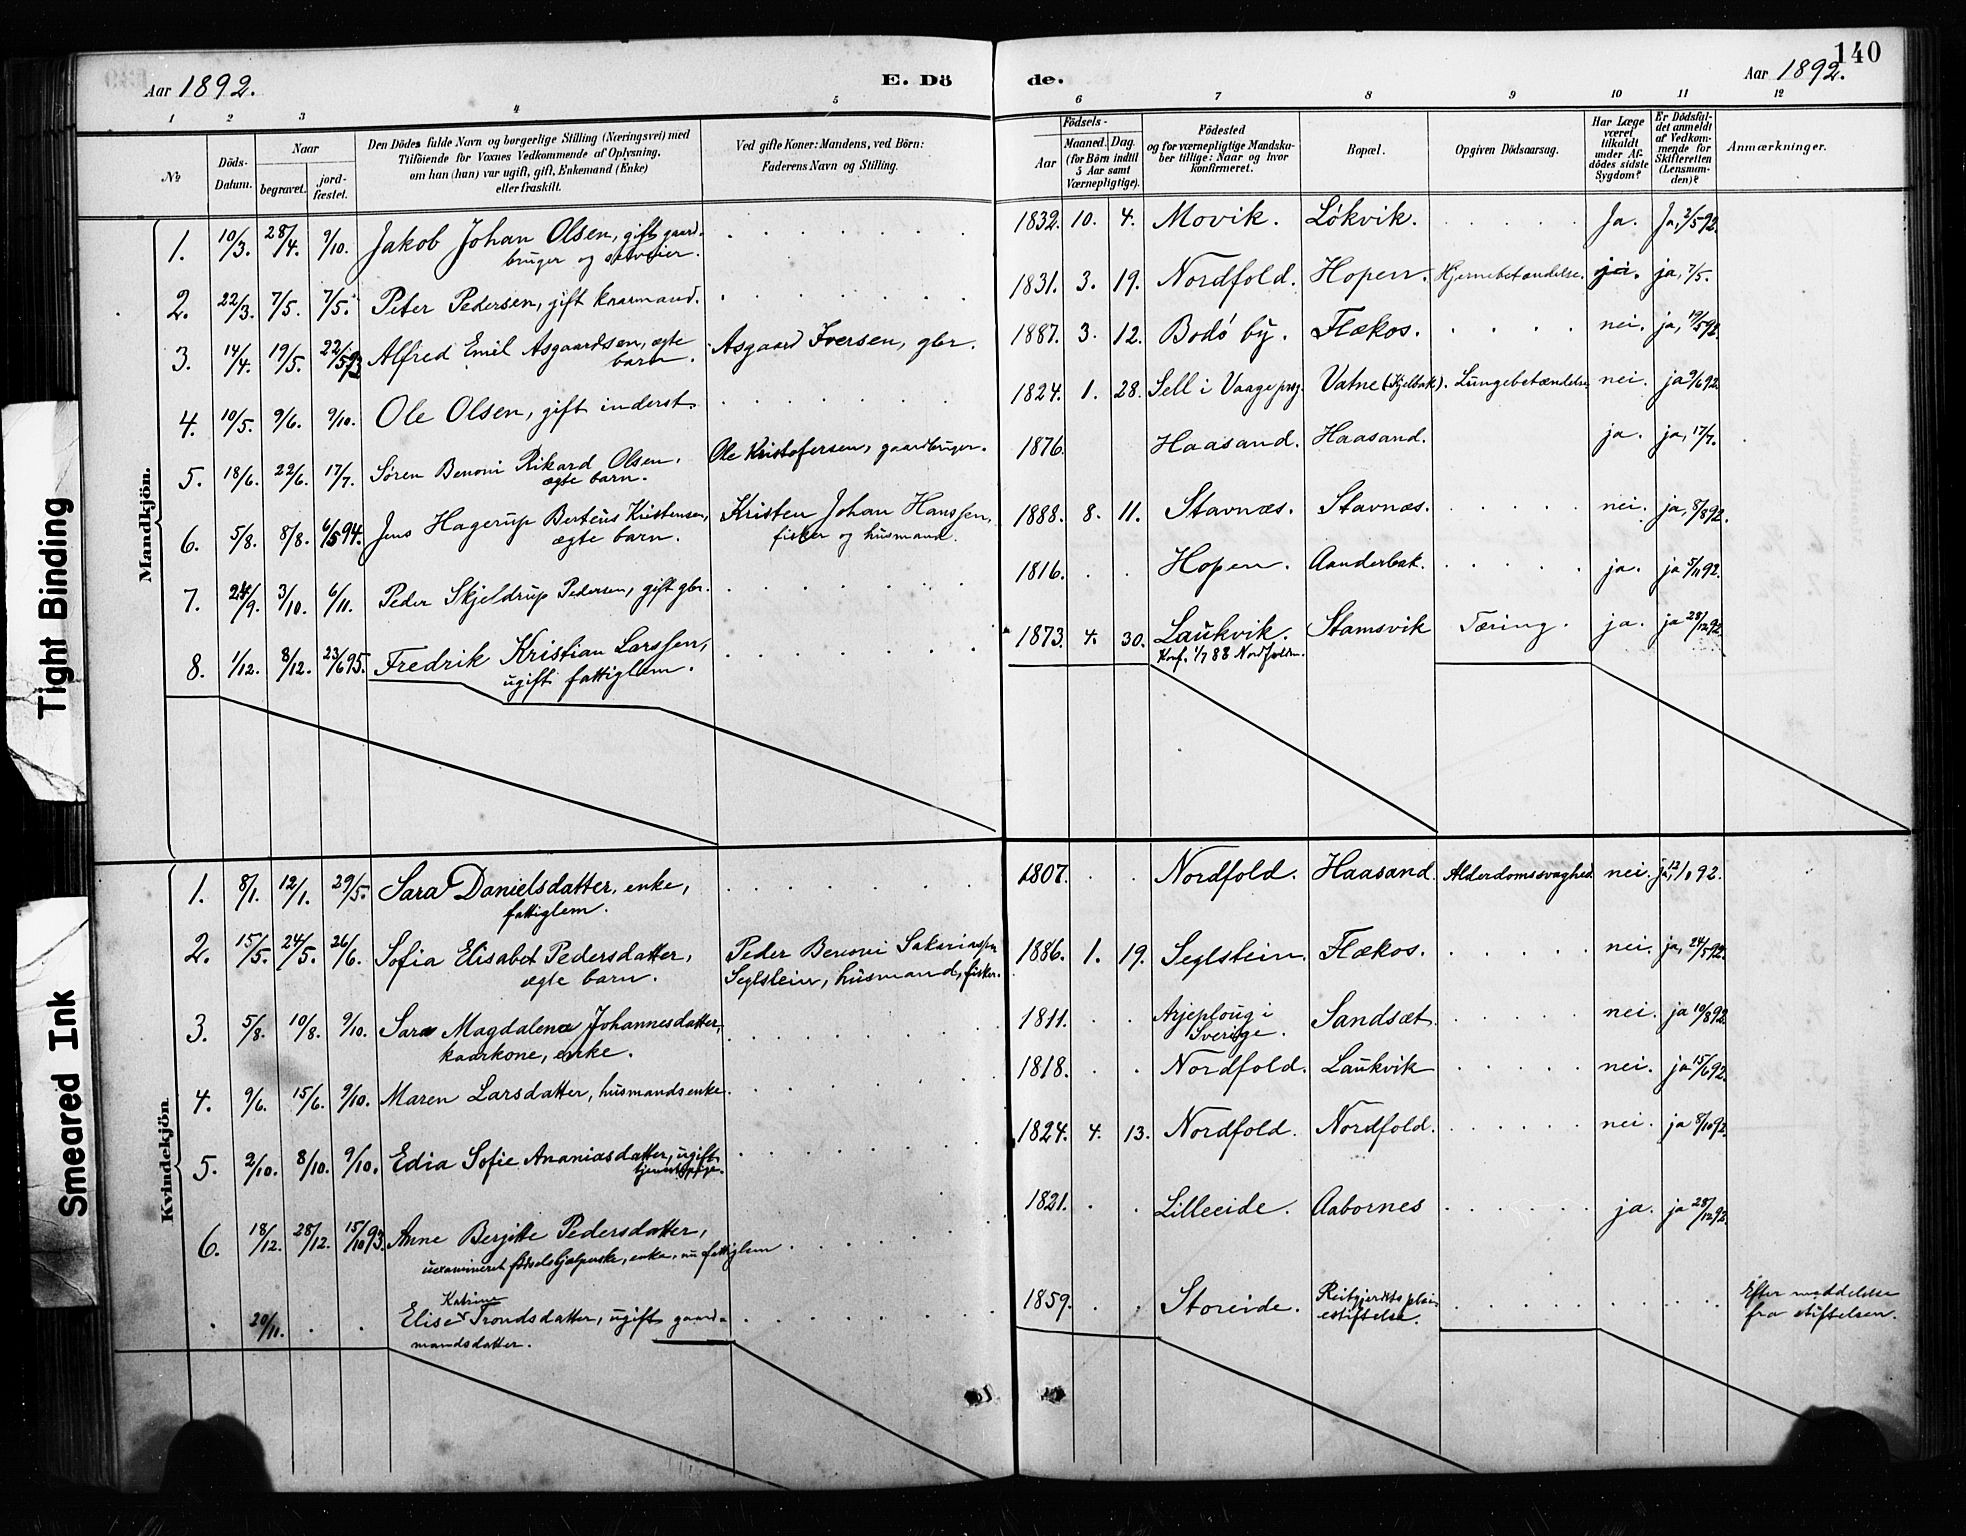 Aar 1892.
E. Döde.
Aar 1892.
140
1 2 3 4 5 6 7 8 9 10 11 12
No
Döds-Datum.
Naar
begravet.
jord-fæstet.
Den Dödes fulde Navn og borgerlige Stilling (Næringsvei) med
Tilföiende for Voxnes Vedkommende af Oplysning,
om han (hun) var ugift, gift, Enkemand (Enke)
eller fraskilt.
Ved gifte Koner: Mandens, ved Börn:
Faderens Navn og Stilling.
Födsels-
Aar
Maaned. Dag.
(for Börn indtil
5 Aar samt
Værnepligtige).
Födested
og for værnepligtige Mandska-
ber tillige: Naar og hvor
konfirmeret.
Bopæl.
Opgiven Dödsaarsag.
Har Læge
været
tilkaldt
under Af-
dödes sidste
Sygdom?
Er Dödsfal-
det anmeldt
af Vedkom-
mende for
Skifteretten
(Lensman-
den)?
Anmærkninger.
Mandkjön.
1. 10/3. 28/4. 9/10. Jakob Johan Olsen, gift gaard-
bruger og
1832. 10. 4. Movik. Lökvik. Ja. Ja, 2/5 92.
2. 22/3. 7/5. 7/5. Peter Pedersen, gift kaarmand. 1831. 3. 19. Nordfold. Hopen. Hjernebetændelse. ja, 7/5.
3. 14/4. 19/5. 22/5 93 Alfred Emil Asgaardsen, ægte
barn.
Asgaard Iversen, gbr. 1887. 3. 12. Bodö by. Flækos. nei. ja, 19/5 92.
4. 10/5. 9/6. 9/10. Ole Olsen, gift inderst. 1824. 1. 28. Sell i Vaage prg. Vatne (Kjelbak). Lungebetændelse nei. ja 9/6 92.
5. 18/6. 22/6. 17/7. Søren Benoni Rikard Olsen.
ægte barn.
Ole Kristofersen, gaardbruger. 1876. Haasand. Haasand. ja. ja, 17/7.
6. 5/8. 8/8. 6/5 94. Jens Hagerup Berteus Kristensen,
ægte barn.
Kristen Johan Hanssen,
fisker og husmand.
1888. 8. 11. Stavnæs. Stavnæs. nei. ja, 8/8 92.
7. 24/9. 3/10. 6/11. Peder Skjeldrup Pedersen, gift gbr. 1816. Hopen. Aanderbak. ja. ja 5/11 92.
8. 1/12. 8/12. 23/6 95. Fredrik Kristian Larssen,
ugift fattiglem.
1873. 4. 30. Laukvik. Stamsvik Tæring. ja. ja 28/12 92.
Konf. 1/7 88 Nordfolden.
Kvindekjön.
1. 8/1. 12/1. 29/5. Sara Danielsdatter, enke,
fattiglem.
1807. Nordfold. Haasand. Alderdomssvaghed nei. ja, 12/1 92.
2. 15/5. 24/5. 26/6. Sofia Elisabet Pedersdatter,
ægte barn.
Peder Benoni Sakariassen
Seglstein, husmand, fisker.
1886. 1. 19. Seglstein. Flækos. nei. ja, 24/5 92.
3. 5/8. 10/8. 9/10. Sara Magdalena Johannesdatter,
kaarkone, enke.
1811. Arjeploug i
Sverige.
Sandsæt. nei. ja 10/8 92.
4. 9/6. 15/6. 9/10. Maren Larsdatter, husmandsenke. 1818. Nordfold. Laukvik nei. ja 15/6 92.
5. 2/10. 8/10. 9/10. Edia Sofie Ananiasdatter, ugift
tjenestepige.
1824. 4. 13. Nordfold. Nordfold. nei. ja 8/10 92.
6. 18/12. 28/12. 15/10 93. Anne Berjitte Pedersdatter,
uexamineret fødselshjælperske, enke, nu fattiglem
1821. Lilleeide. Aabornes ja. ja 28/12 92.
20/11. Elise Katrine Trondsdatter, ugift gaard-
mandsdatter.
1859. Storeide. Reitgjerdets plei-
estiftelse.
Efter meddelelse
fra stiftelsen.
Tight Binding
Smeared Ink